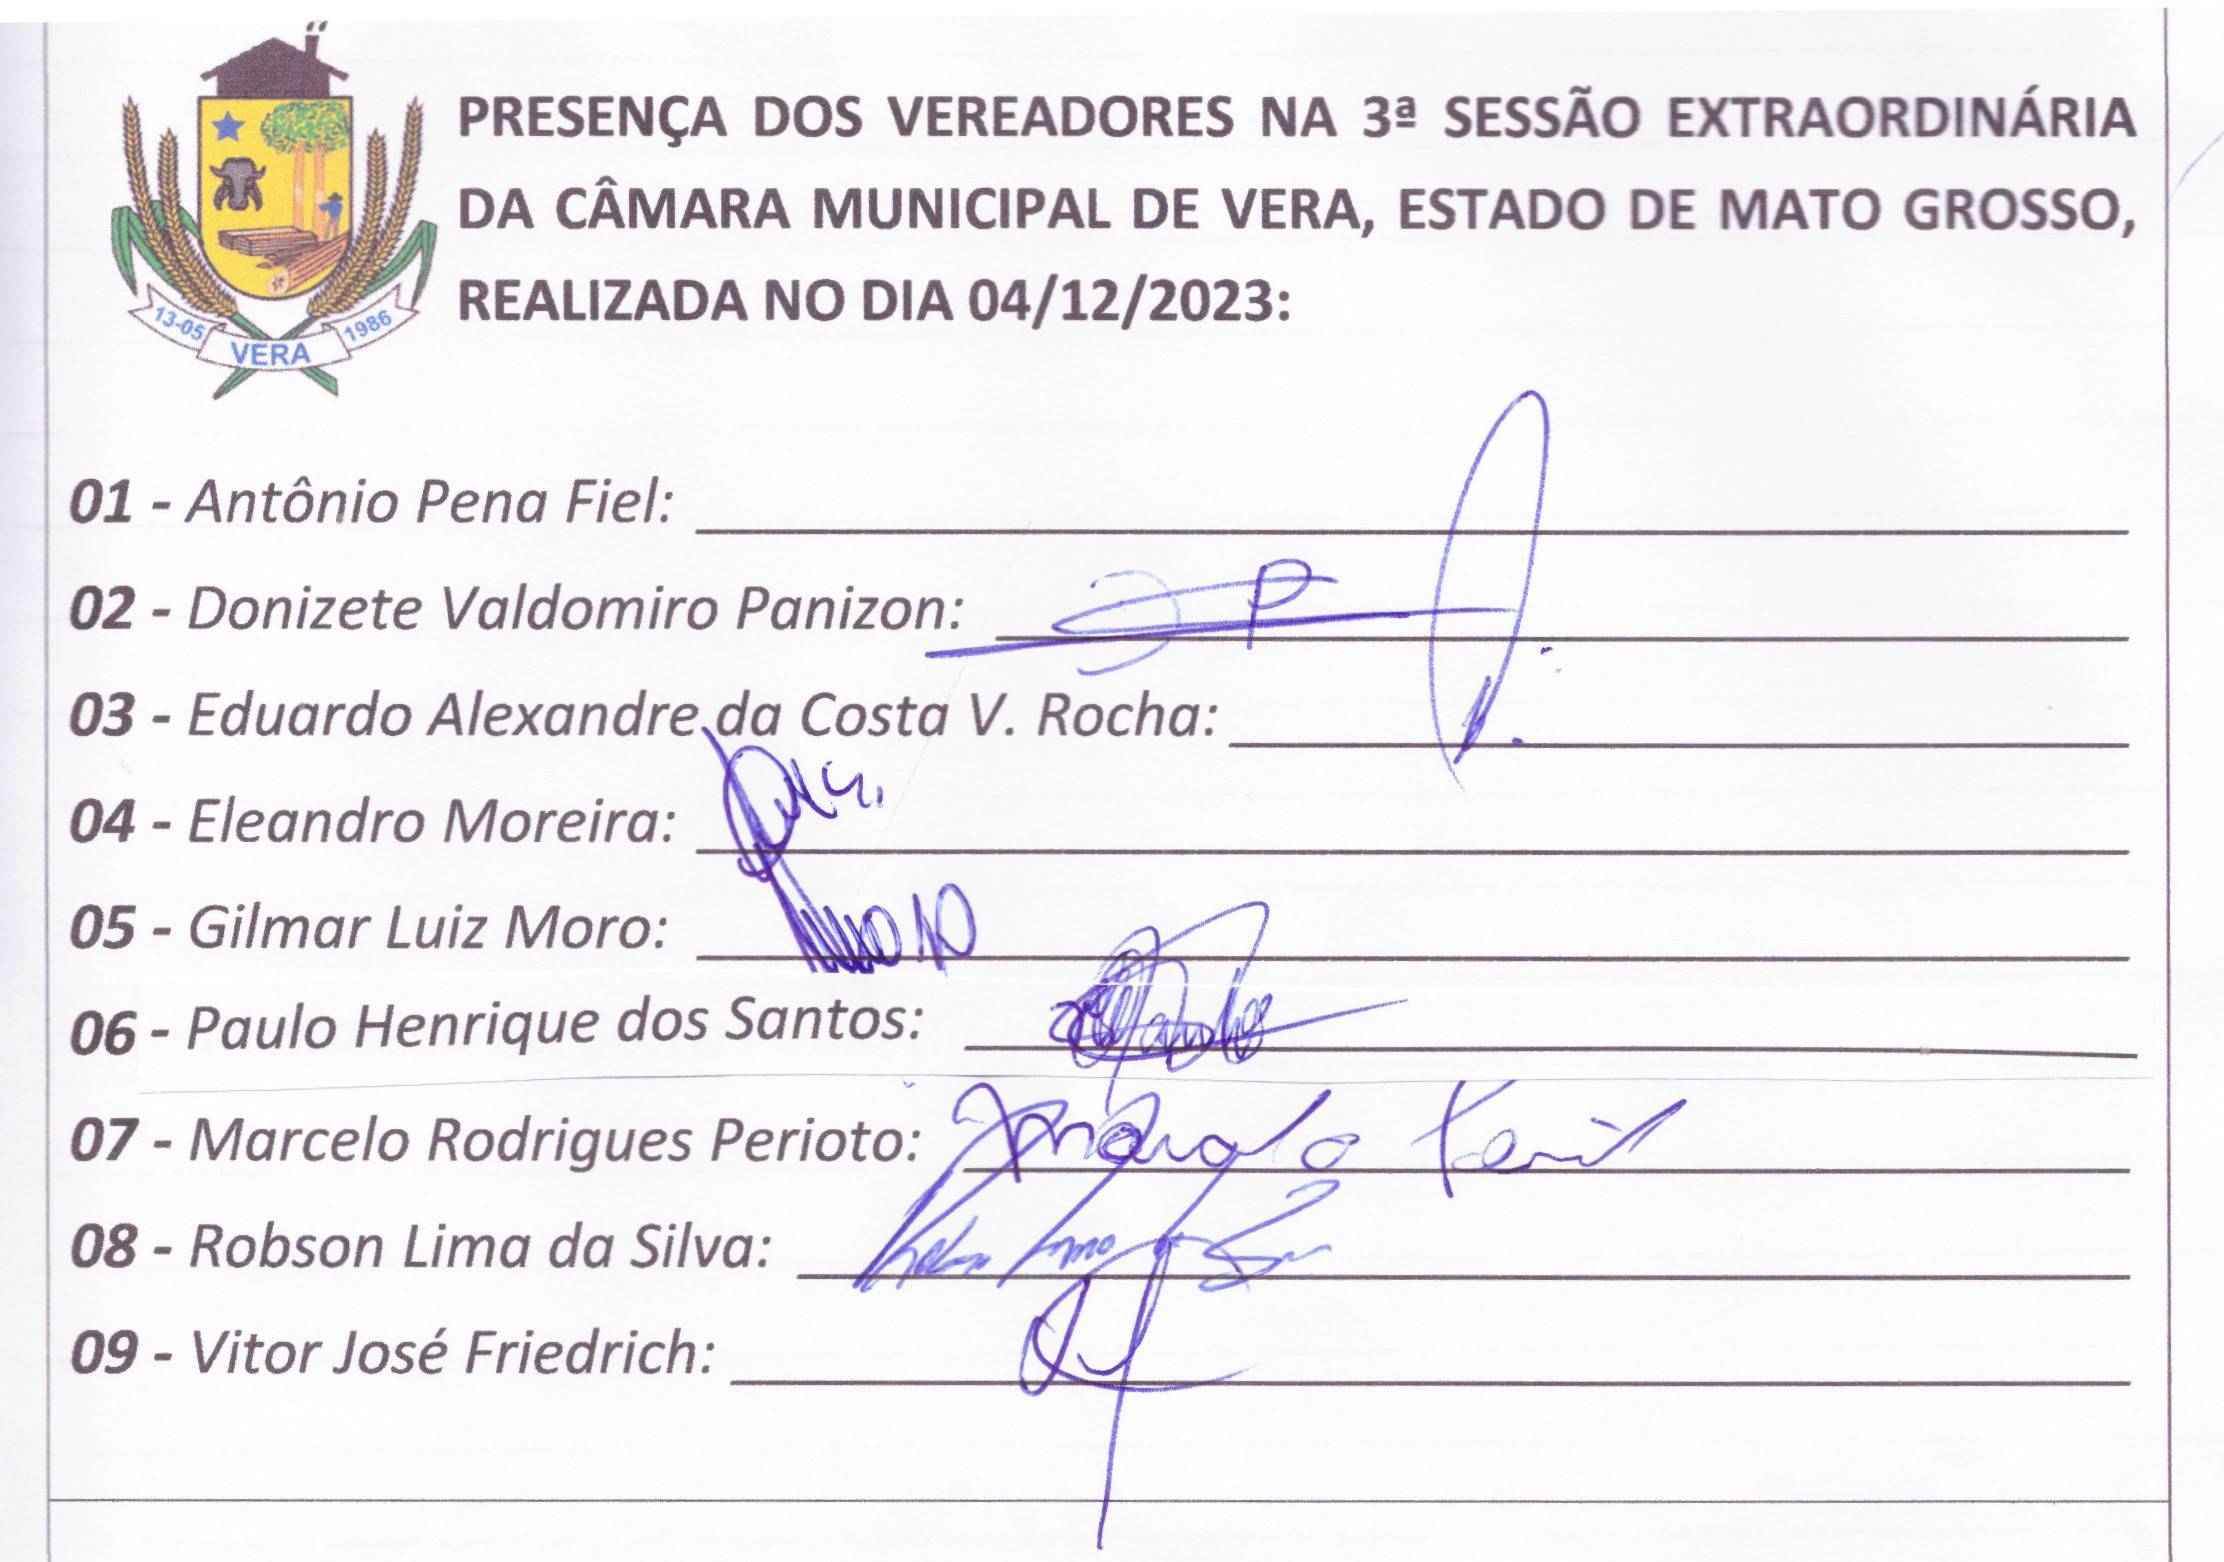 PRESENÇA DOS VEREADORES NA 3ª SESSÃO EXTRAORDINÁRIA
DA CÂMARA MUNICIPAL DE VERA, ESTADO DE MATO GROSSO,
REALIZADA NO DIA 04/12/2023:
13-05 VERA 1986
01 - Antônio Pena Fiel:
02 - Donizete Valdomiro Panizon:
03 - Eduardo Alexandre da Costa V. Rocha:
04 - Eleandro Moreira:
05 - Gilmar Luiz Moro:
06 - Paulo Henrique dos Santos:
07 - Marcelo Rodrigues Perioto:
08 - Robson Lima da Silva:
09 - Vitor José Friedrich: